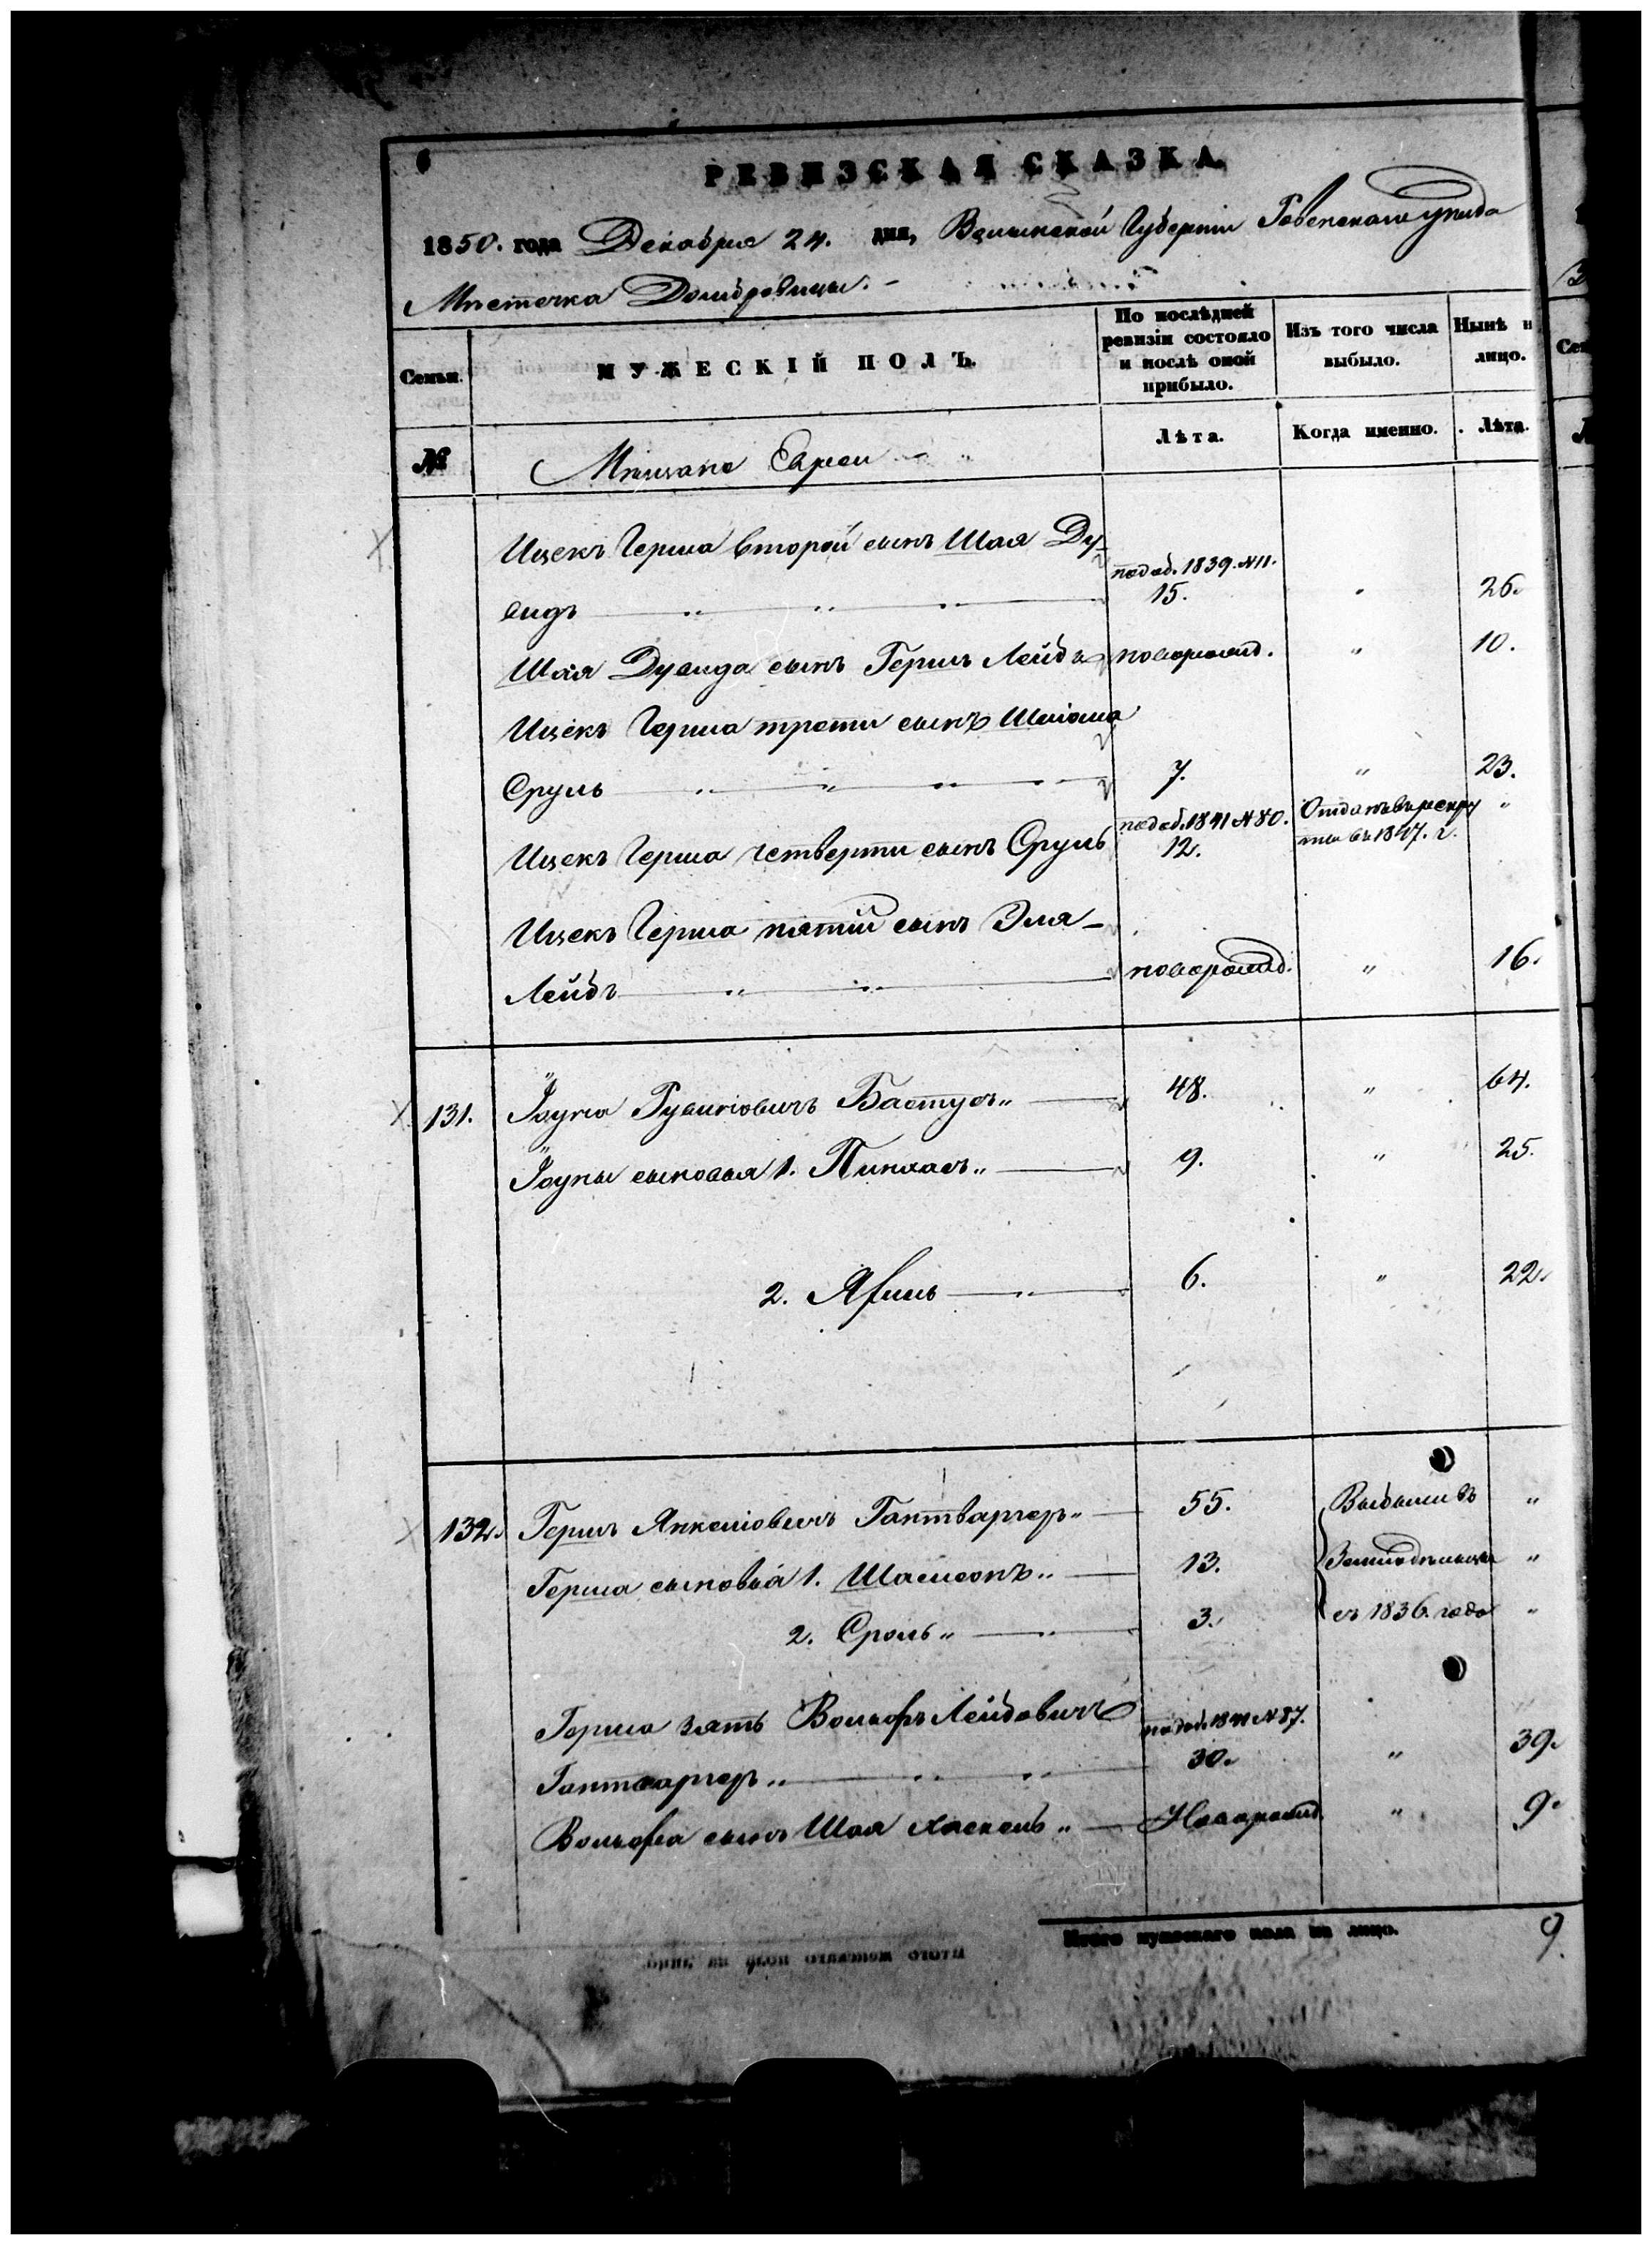 6
РЕВИЗСКАЯ СКАЗКА.
1850. года Декабря 24. дня, Волынской Губернiи Ровенскаго уѣзда
Мѣстечка Домбровицы. -
Семьи.
МУЖЕСКІЙ ПОЛЪ.
По послѣдней ревизіи состояло и послѣ оной прибыло.
Изъ того числа выбыло.
Нынѣ н лицо.
№
Мѣщане Евреи
Лѣта.
Когда именно.
Лѣта.
Ицекъ Герша второй сынъ Шая Ду-
видъ подоб. 1839. №11. 15. " 26.
Шая Дувида сынъ Гершъ Лейбъ новорожд. " 10.
Ицекъ Герша трети сынъ Шліома
Сруль 7. " 23.
Ицекъ Герша четверти сынъ Сруль подоб. 1841 №80. 12. Отданъ въ рекру ты въ 1847. г. "
Ицекъ Герша пятій сынъ Эля-
Лейбъ новорожд. " 16.
131. Іоуна Рувиновичъ Бастусъ 48. " 64.
Іоуны сыновья 1. Пинхасъ 9. " 25.
2. Яfишъ 6. " 22.
132. Гершъ Янкелiовичъ Гантваргеръ 55. Выбыли въ "
Герша сыновья 1. Шамсонъ 13. Земледѣльцы "
2. Сроль 3. съ 1836. года "
Герша зять Вольфъ Лейбовичъ подоб. 1841 №87.
Гантваргеръ 30. " 39.
Вольфа сынъ Шая Хаскель Новорожд. " 9.
Итого мужескаго пола на лицо. 9.